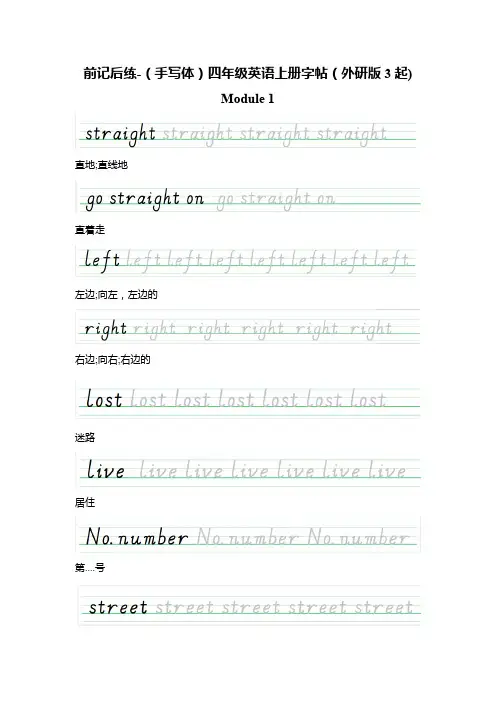 前记后练-（手写体）四年级英语上册字帖（外研版3起)
Module 1
straight straight straight straight
直地;直线地
go straight on go straight on
直着走
left left left left left left left left
左边;向左，左边的
right right right right right right
右边;向右;右边的
lost lost lost lost lost lost lost
迷路
live live live live live live live
居住
No.number No.number No.number
第....号
street street street street street